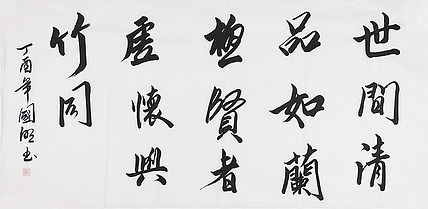 世間清
品如蘭
極賢者
虛懷與
竹同
丁酉年國明書